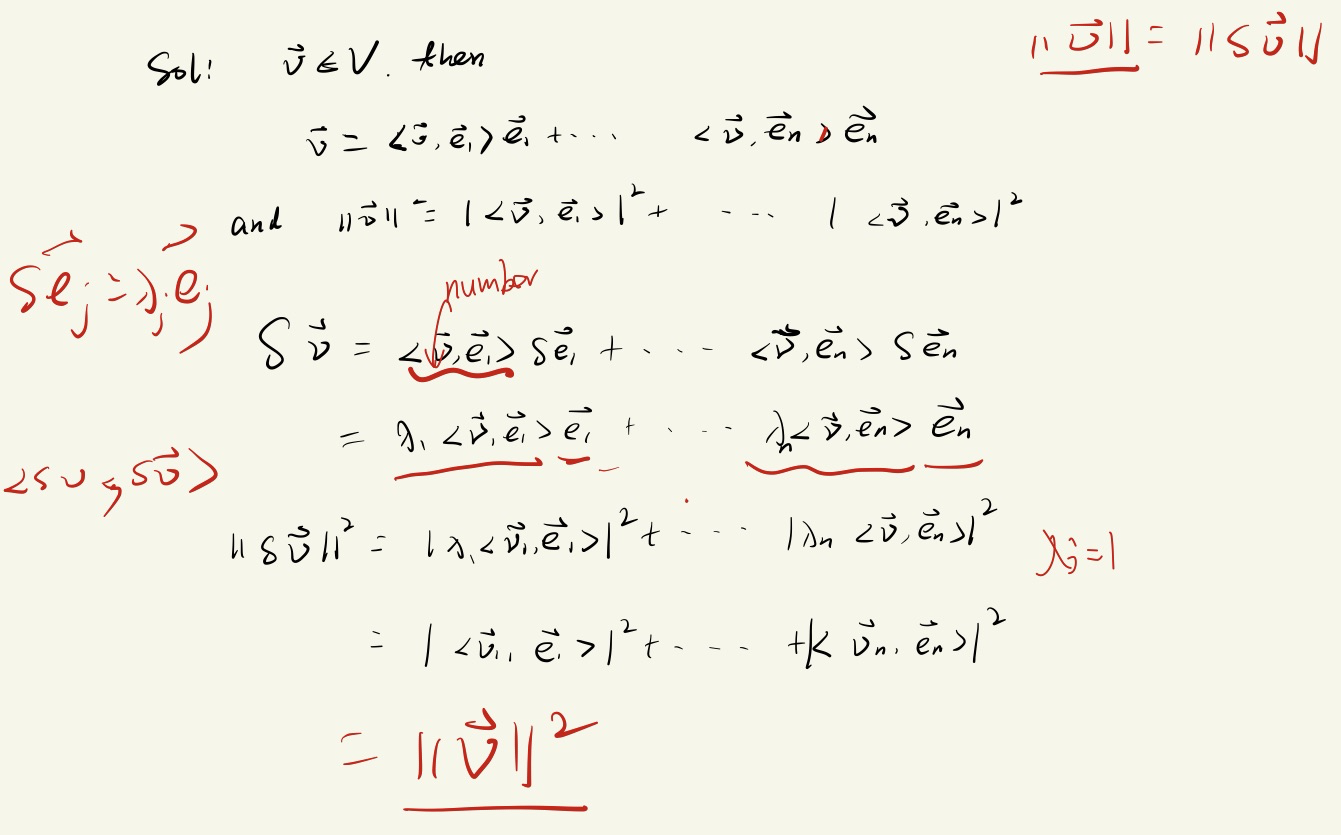 ‖v⃗‖ = ‖Sv⃗‖
Sol: v⃗ ∈ V. then
v⃗ = <v⃗, e⃗₁> e⃗₁ + ... <v⃗, e⃗n> e⃗n
and ‖v⃗‖² = |<v⃗, e⃗₁>|² + ... |<v⃗, e⃗n>|²
Se⃗j = λj e⃗j
number
Sv⃗ = <v⃗, e⃗₁> Se⃗₁ + ... <v⃗, e⃗n> Se⃗n
= λ₁ <v⃗, e⃗₁> e⃗₁ + ... λn <v⃗, e⃗n> e⃗n
<Sv, Sv⃗>
‖Sv⃗‖² = |λ₁ <v⃗₁, e⃗₁>|² + ... |λn <v⃗, e⃗n>|²
λj = 1
= |<v⃗₁, e⃗₁>|² + ... + |<v⃗n, e⃗n>|²
= ‖v⃗‖²